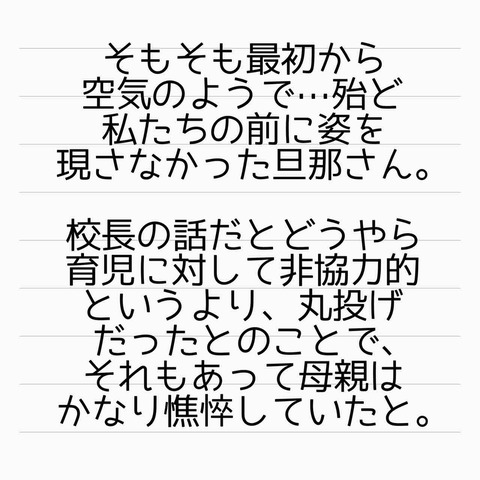 そもそも最初から
空気のようで…殆ど
私たちの前に姿を
現さなかった旦那さん。
校長の話だとどうやら
育児に対して非協力的
というより、丸投げ
だったとのことで、
それもあって母親は
かなり憔悴していたと。